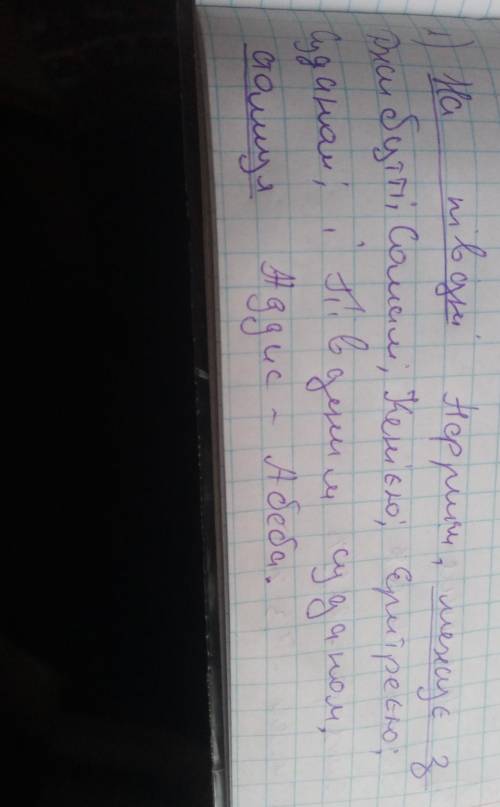 1) На півдні Африки, межує з
Джибутті, Сомалі, Кенією, Ерітреєю,
Суданом, і Південим суданом,
столиця Аддис-Абеба.